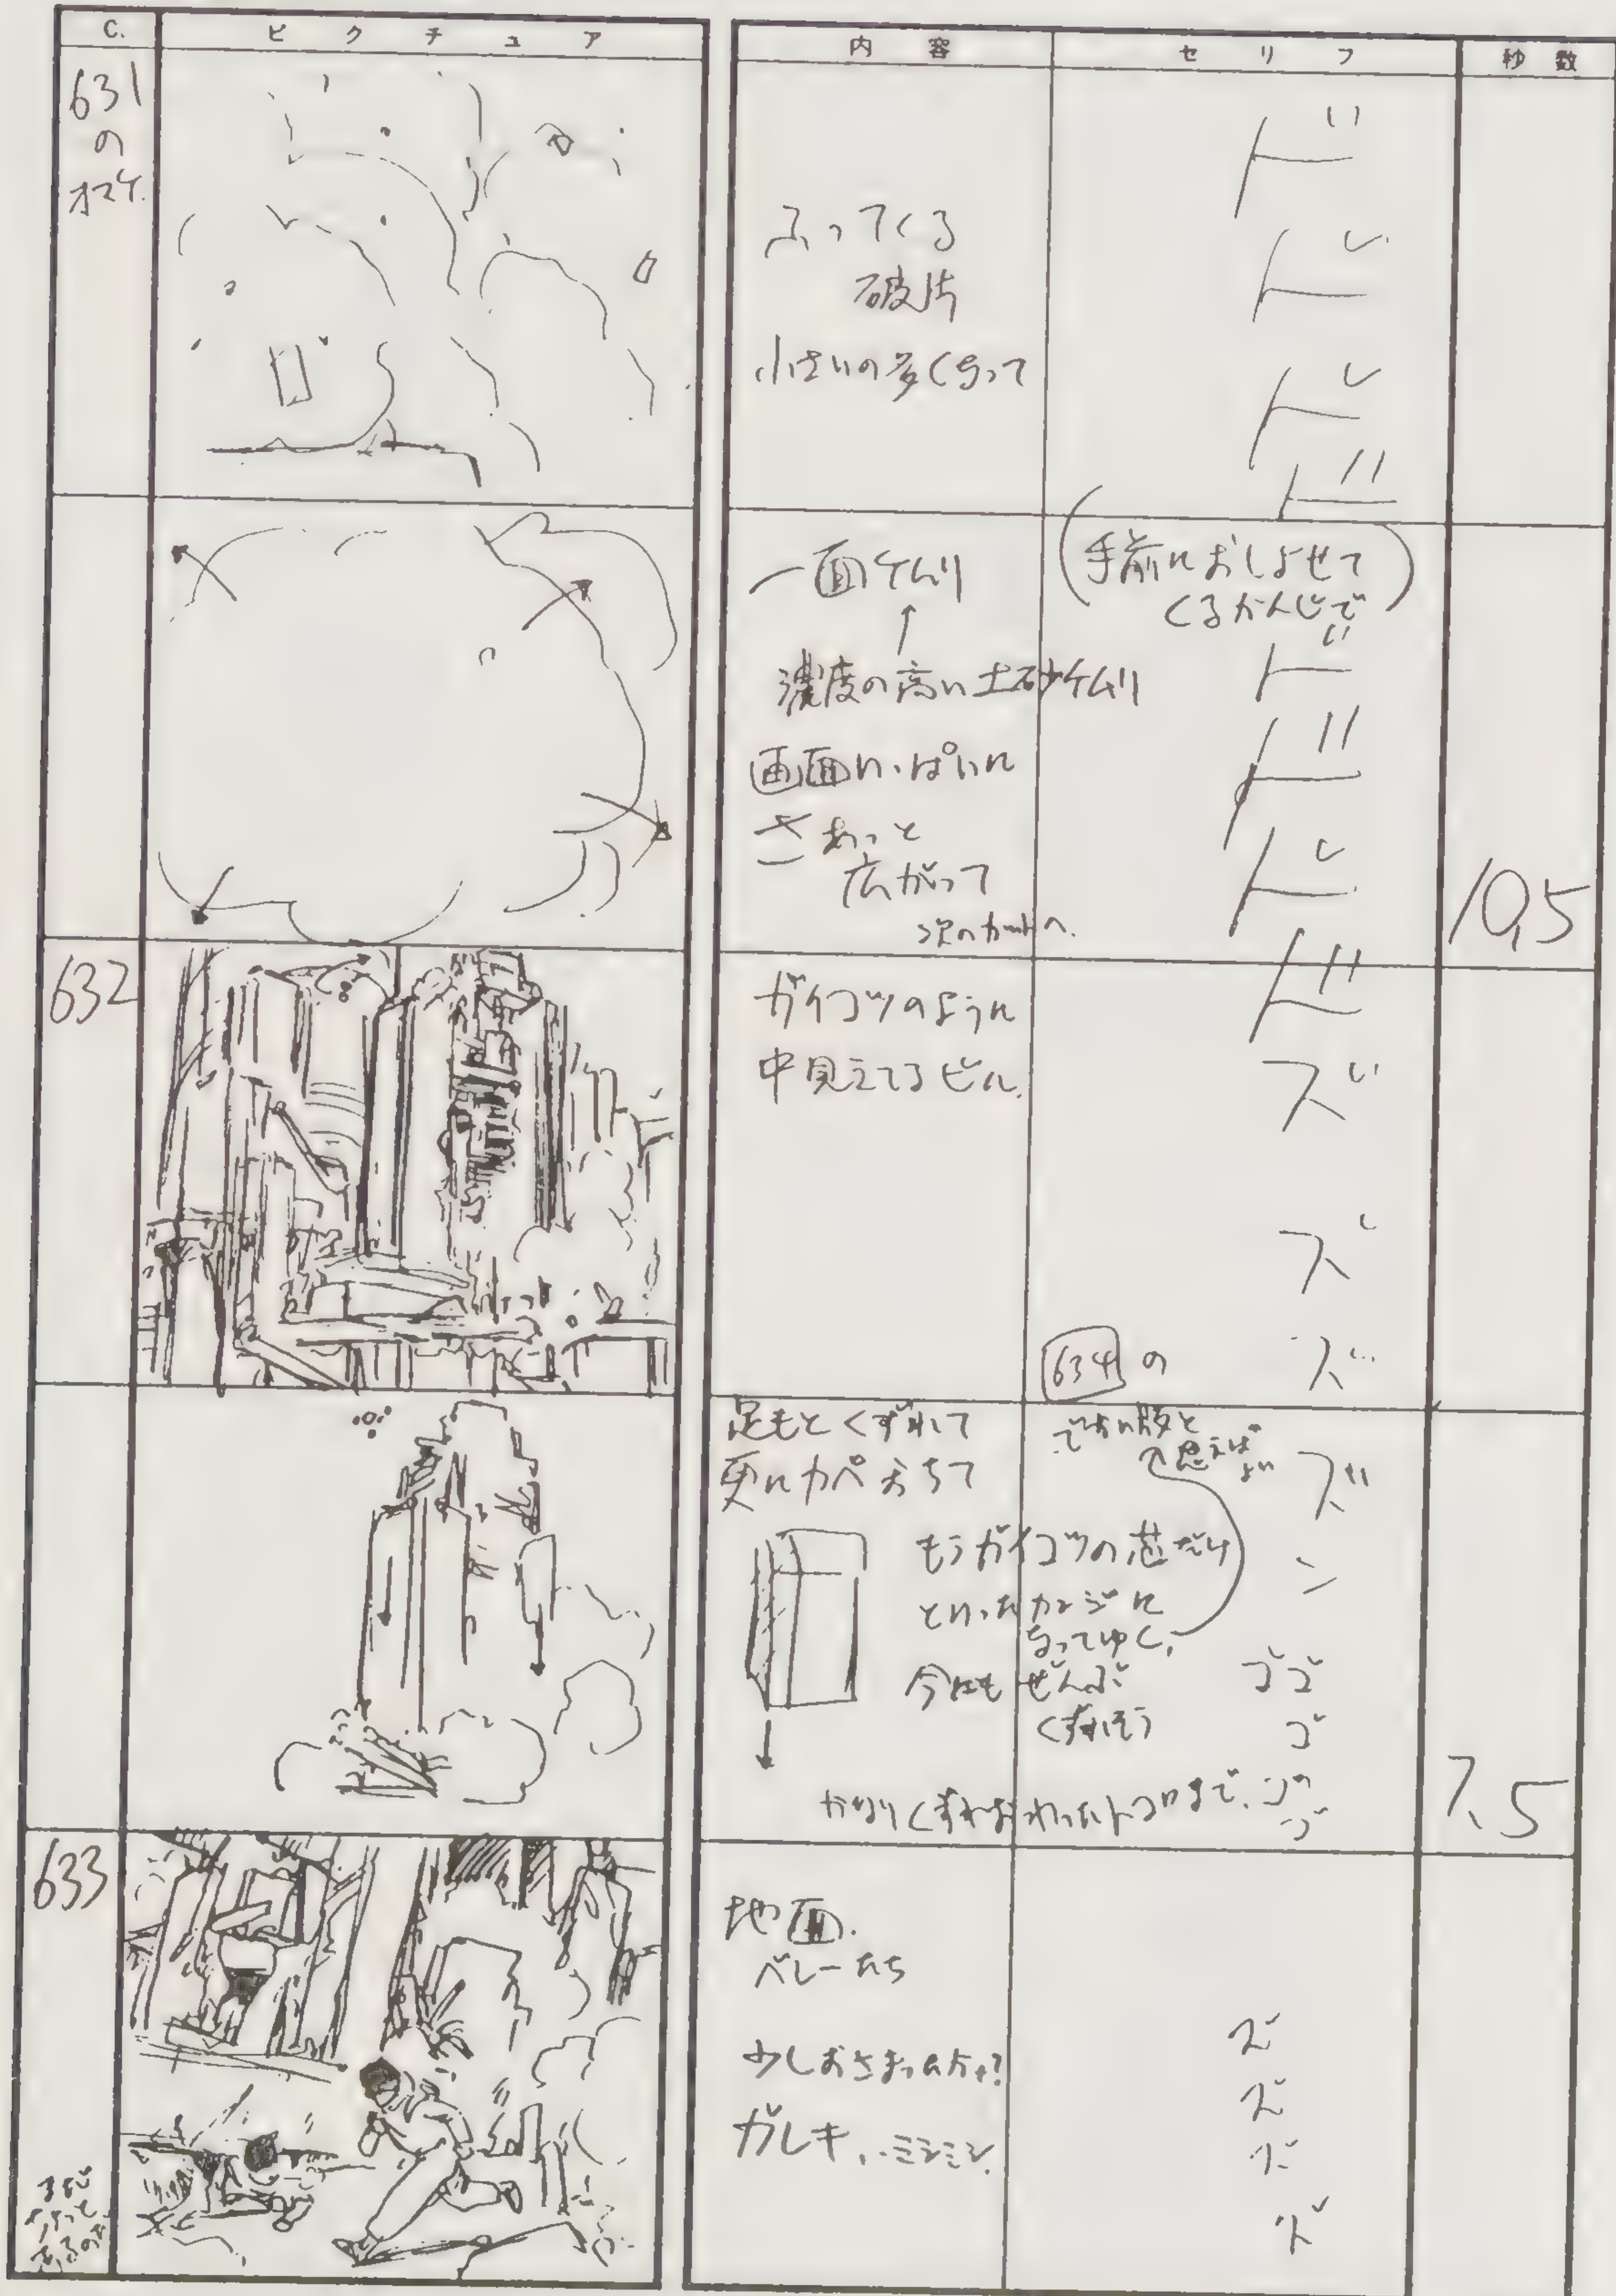 C.
ピクチュア
内容
セリフ
秒数
631
の
オマケ.
ふってくる
破片
小さいの多くなって
ド
ド
ド
ド
一面ケムリ
↑
濃度の高い土砂ケムリ
画面いっぱいに
さあっと
広がって
次のカットへ.
(手前におしよせて
くるかんじで)
ド
ド
ド
10,5
632
ガイコツのように
中見えてるビル.
ド
ズ
ズ
ズ
634の
足もとくずれて
更にカベおちて
でかい版と
思えばよい
もうガイコツの芯だけ
といったカンジに
なってゆく,
今にもぜんぶ
くずれそう
かなりくずれおわったトコロまで.
ズ
ン
ゴゴ
ゴ
ゴ
ゴ
7.5
633
地面.
ベレーたち
少しおさまったか?
ガレキ
ミシミシ.
ズ
ズ
ズ
ズ